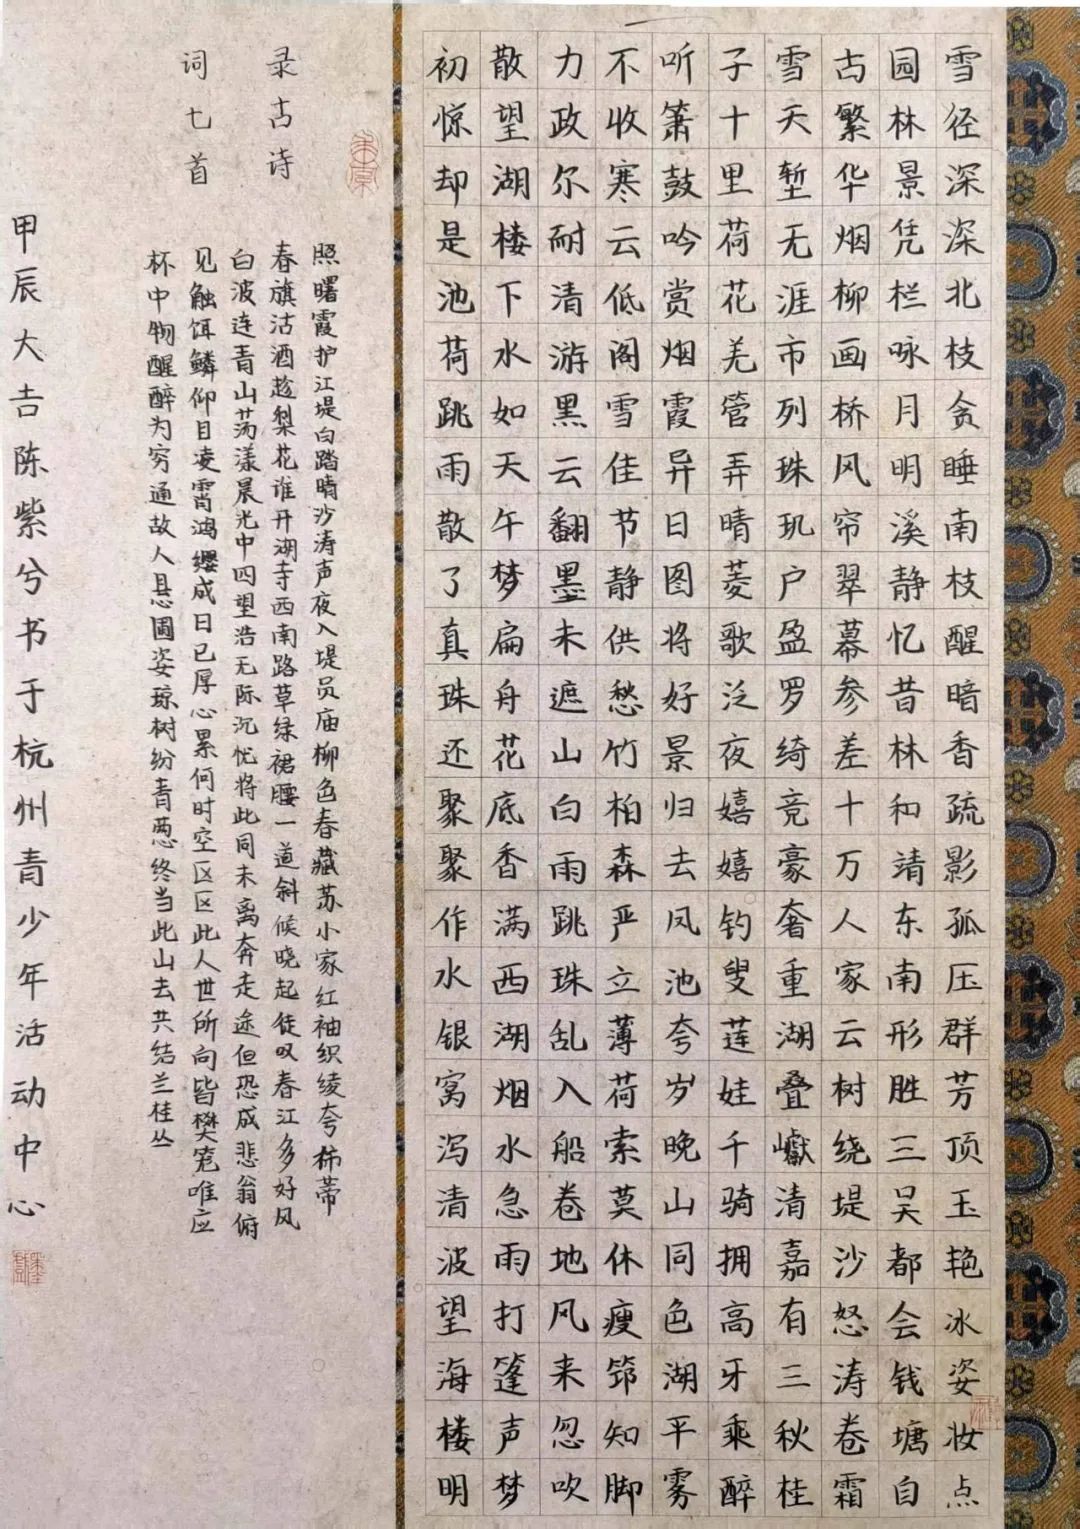 雪径深深北枝贪睡南枝醒暗香疏影孤压群芳顶玉艳冰姿妆点
园林景凭栏咏月明溪静忆昔林和靖东南形胜三吴都会钱塘自
古繁华烟柳画桥风帘翠幕参差十万人家云树绕堤沙怒涛卷霜
雪天堑无涯市列珠玑户盈罗绮竞豪奢重湖叠巘清嘉有三秋桂
子十里荷花羌管弄晴菱歌泛夜嬉嬉钓叟莲娃千骑拥高牙乘醉
听箫鼓吟赏烟霞异日图将好景归去凤池夸岁晚山同色湖平雾
不收寒云低阁雪佳节静供愁竹柏森严立薄荷索莫休瘦筇知脚
力政尔耐清游黑云翻墨未遮山白雨跳珠乱入船卷地风来忽吹
散望湖楼下水如天午梦扁舟花底香满西湖烟水急雨打篷声梦
初惊却是池荷跳雨散了真珠还聚聚作水银窝泻清波望海楼明
照曙霞护江堤白踏晴沙涛声夜入堤员庙柳色春藏苏小家红袖织绫夸柿蒂
春旗沽酒趁梨花谁开湖寺西南路草绿裙腰一道斜候晓起徒叹春江多好风
白波连青山荡漾晨光中四望浩无际沉忧将此同未离奔走途但恐成悲翁俯
见触饵鳞仰目凌霄鸿缨成日已厚心累何时空区区此人世所向皆樊笼唯应
杯中物醒醉为穷通故人悬圃姿琼树纷青葱终当此山去共结兰桂丛
录古诗
词七首
甲辰大吉陈紫兮书于杭州青少年活动中心